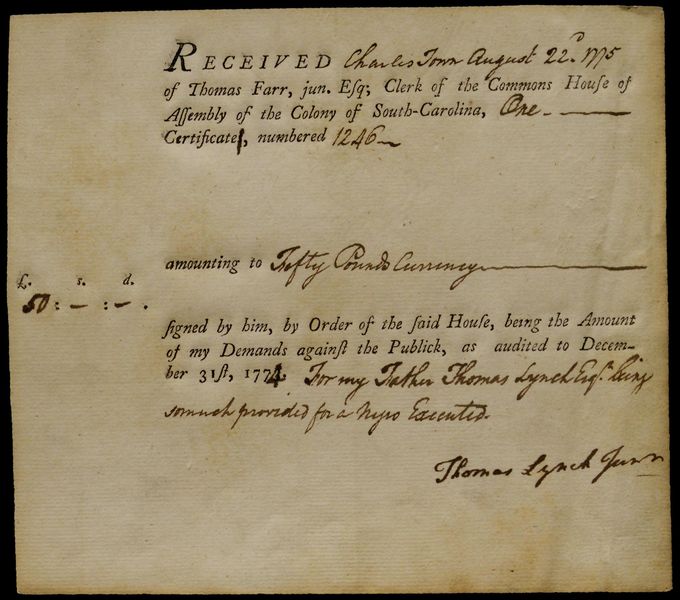 RECEIVED Charles Town August 22d. 1775
of Thomas Farr, jun. Eſq; Clerk of the Commons Houſe of
Aſſembly of the Colony of South-Carolina, One
Certificate, numbered 1246
amounting to Fifty Pounds Currency
£. s. d.
50 : — : — .
ſigned by him, by Order of the ſaid Houſe, being the Amount
of my Demands againſt the Publick, as audited to Decem-
ber 31ſt, 1774. For my Father Thomas Lynch Esqr. being
somuch provided for a Negro Executed.
Thomas Lynch Junr